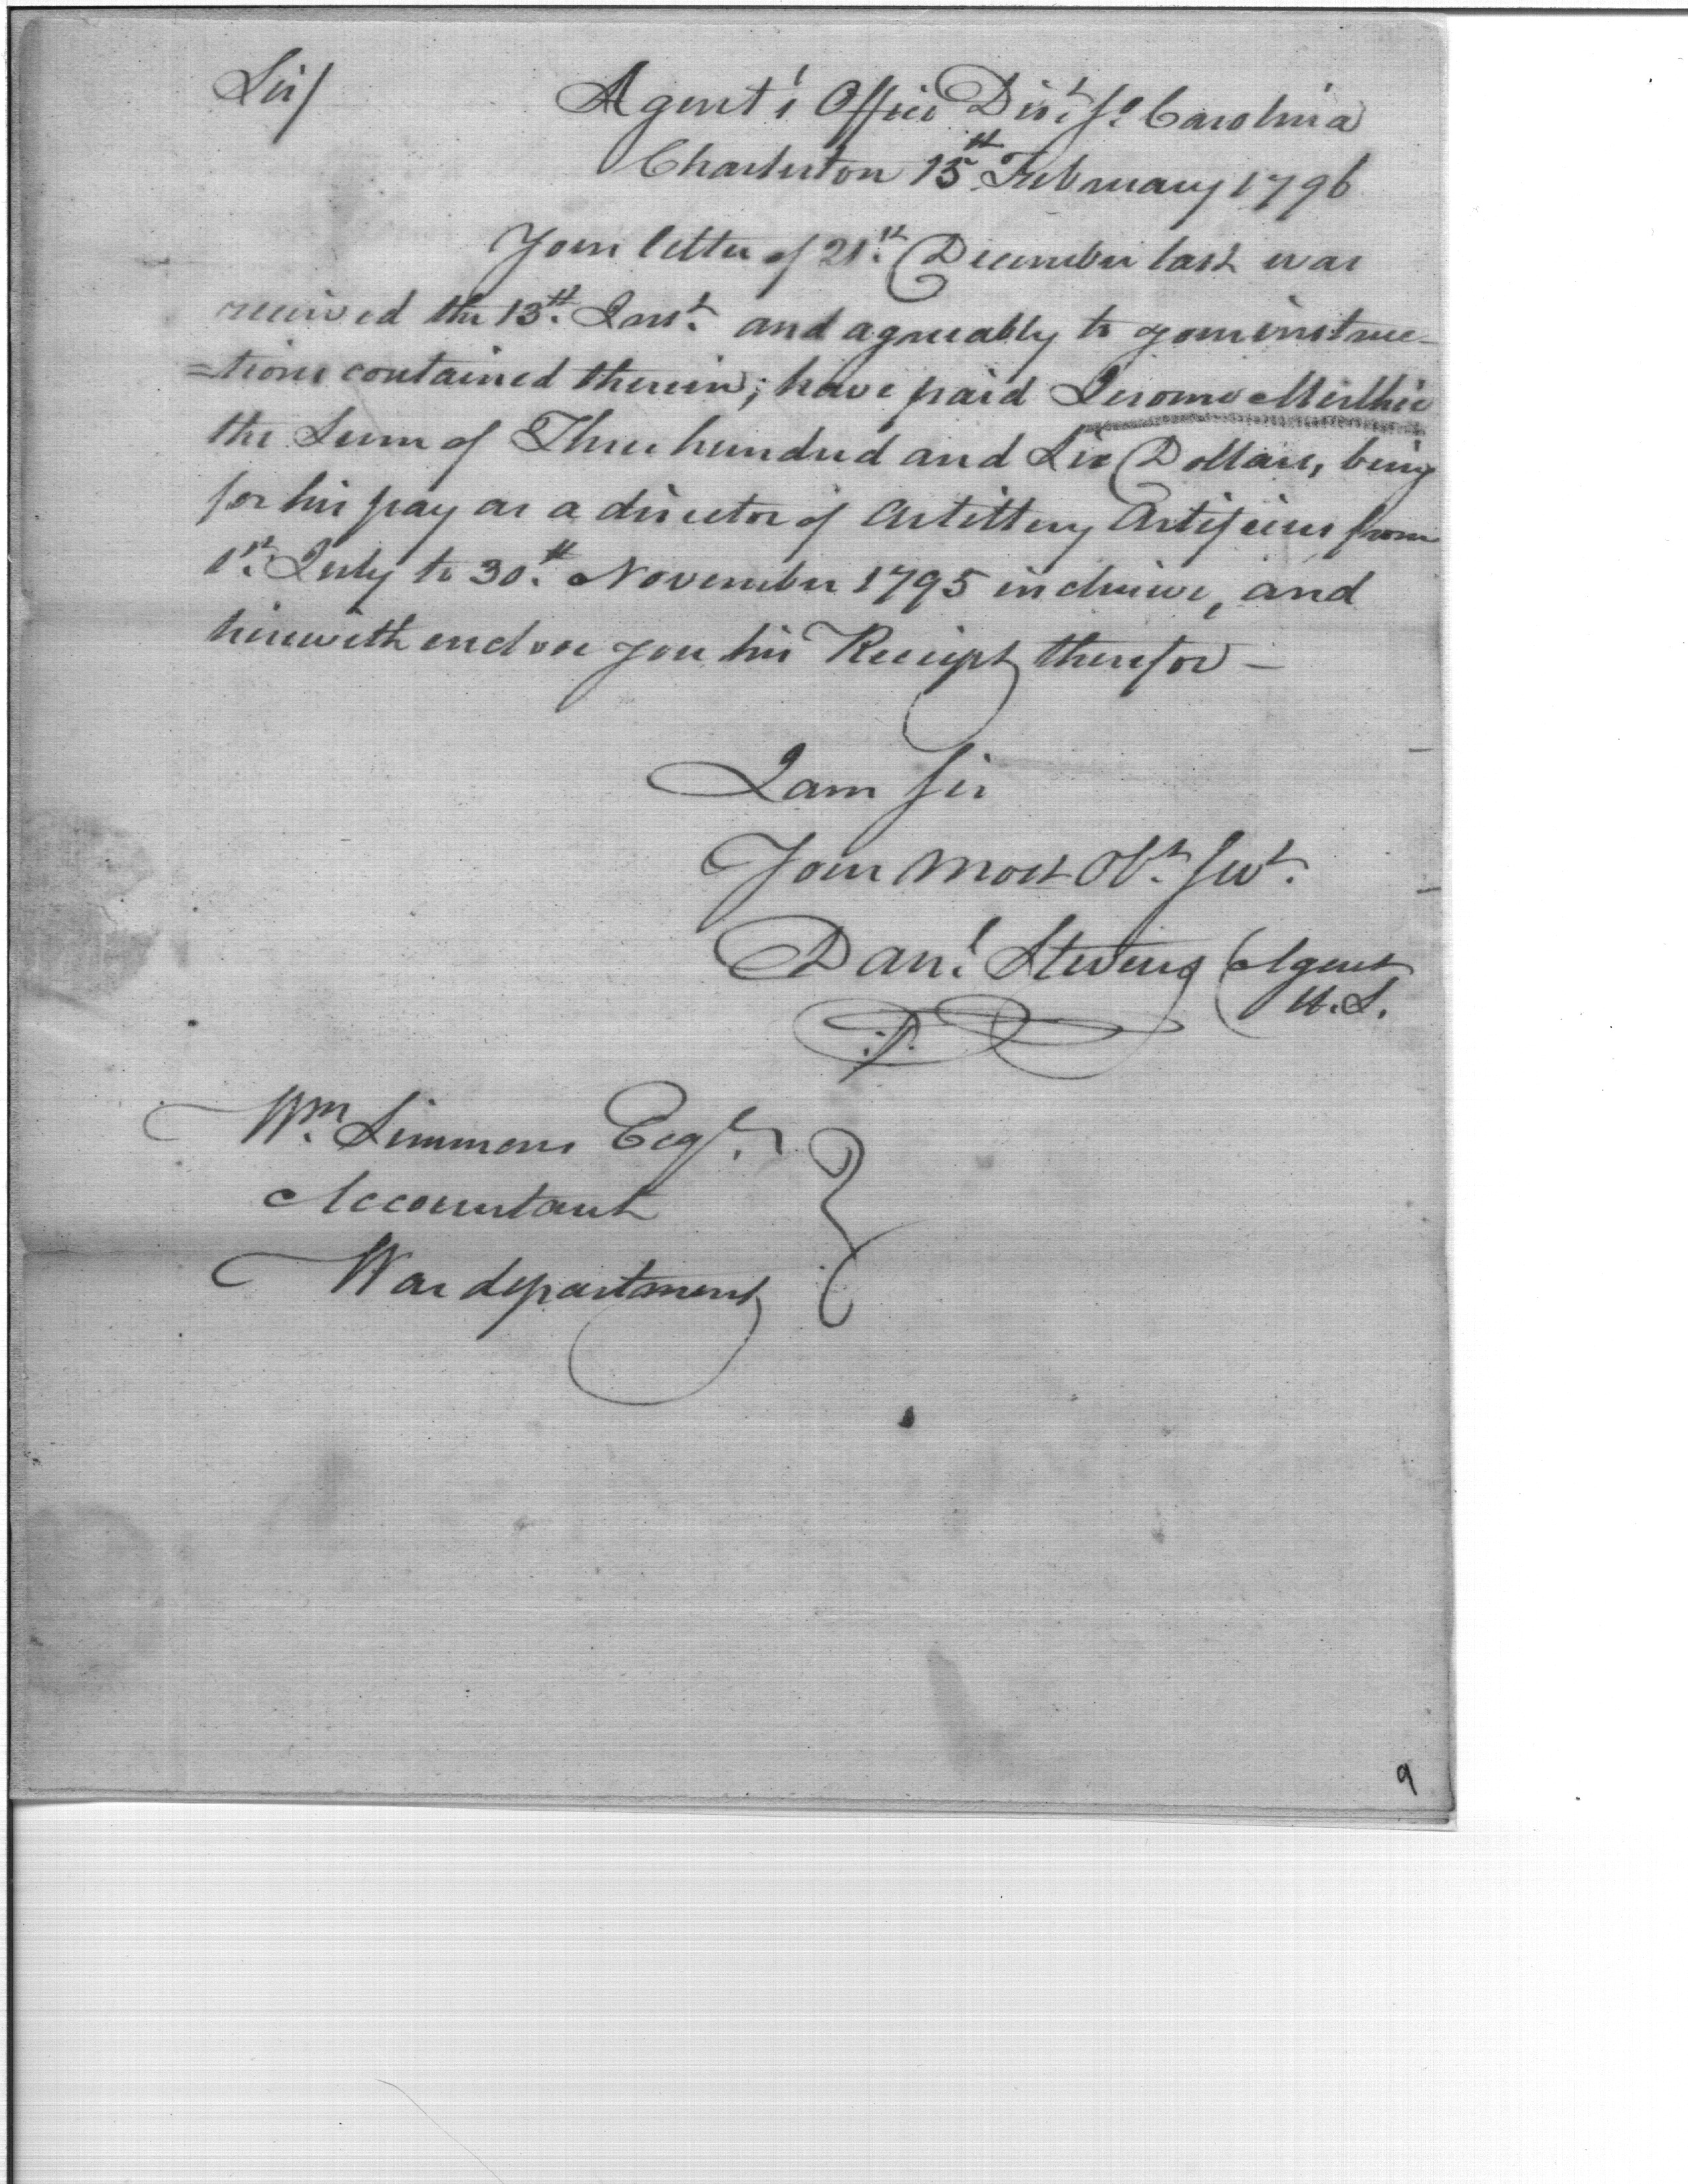 Sir/
Agent's Office Dist. So. Carolina
Charleston 15th. February 1796
Your letter of 21st. December last was
received the 13th. Inst. and agreeably to your instruc-
=tions contained therein; have paid Jerome
the Sum of Three hundred and Six Dollars, being
for his pay as a director of Artillery Artificers from
1st. July to 30th. November 1795 inclusive, and
herewith enclose you his Receipt therefor —
I am Sir
Your most Obt. Servt.
Danl. Stevens Agent
U.S.
Wm. Simmons Esqr.
Accountant
War department
9